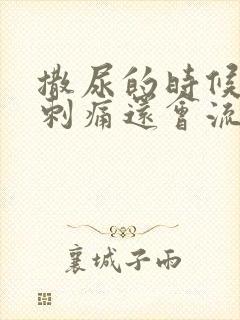 撒尿的时候
刺痛還會流
襄城子雨